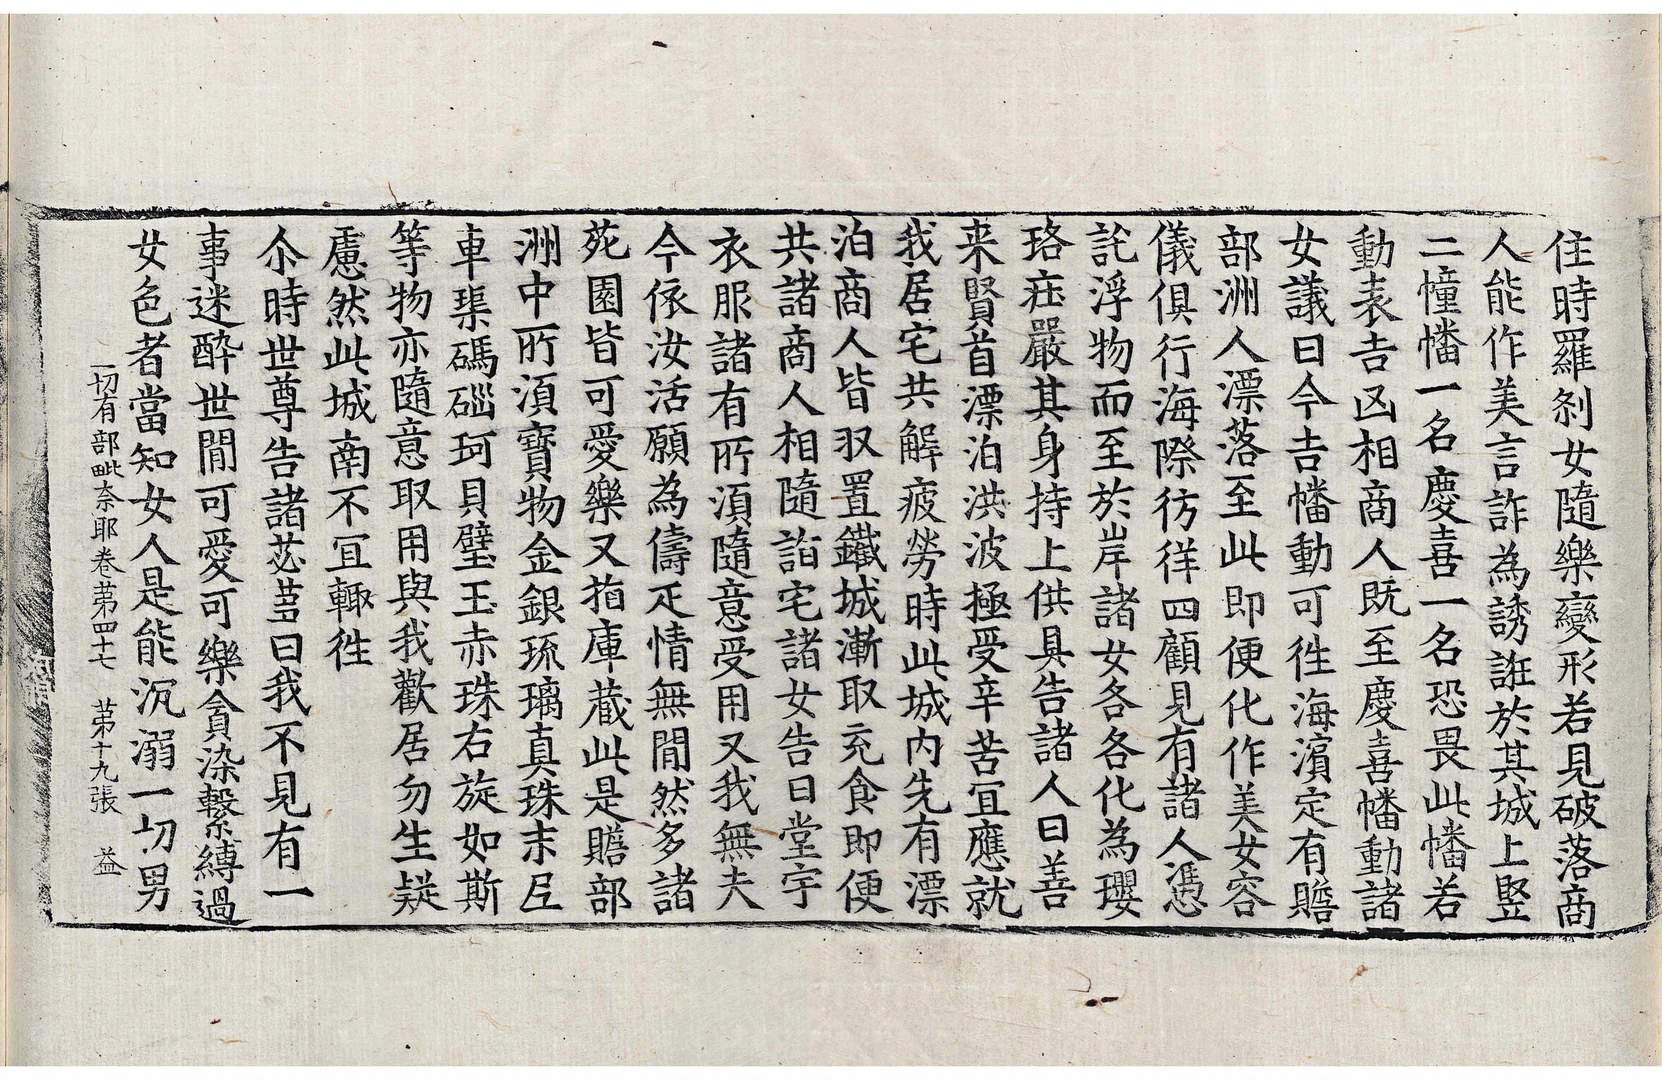 住時羅刹女隨樂變形若見破落商
人能作美言詐為誘誑於其城上竪
二幢幡一名慶喜一名恐畏此幡若
動表吉凶相商人既至慶喜幡動諸
女議曰今吉幡動可徃海濱定有贍
部洲人漂落至此即便化作美女容
儀俱行海際彷徉四顧見有諸人憑
託浮物而至於岸諸女各各化為瓔
珞莊嚴其身持上供具告諸人曰善
来賢首漂泊洪波極受辛苦宜應就
我居宅共解疲勞時此城内先有漂
泊商人皆収置鐵城漸取充食即便
共諸商人相隨詣宅諸女告曰堂宇
衣服諸有所須隨意受用又我無夫
今依汝活願為儔疋情無間然多諸
苑園皆可愛樂又指庫蔵此是贍部
洲中所須寶物金銀琉璃真珠末尼
車渠碼碯珂貝璧玉赤珠右旋如斯
等物亦隨意取用與我歡居勿生疑
慮然此城南不宜輙徃
尒時世尊告諸苾芻曰我不見有一
事迷醉世間可愛可樂貪染繫縛過
女色者當知女人是能沉溺一切男
一切有部毗奈耶卷苐四十七　苐十九張　益